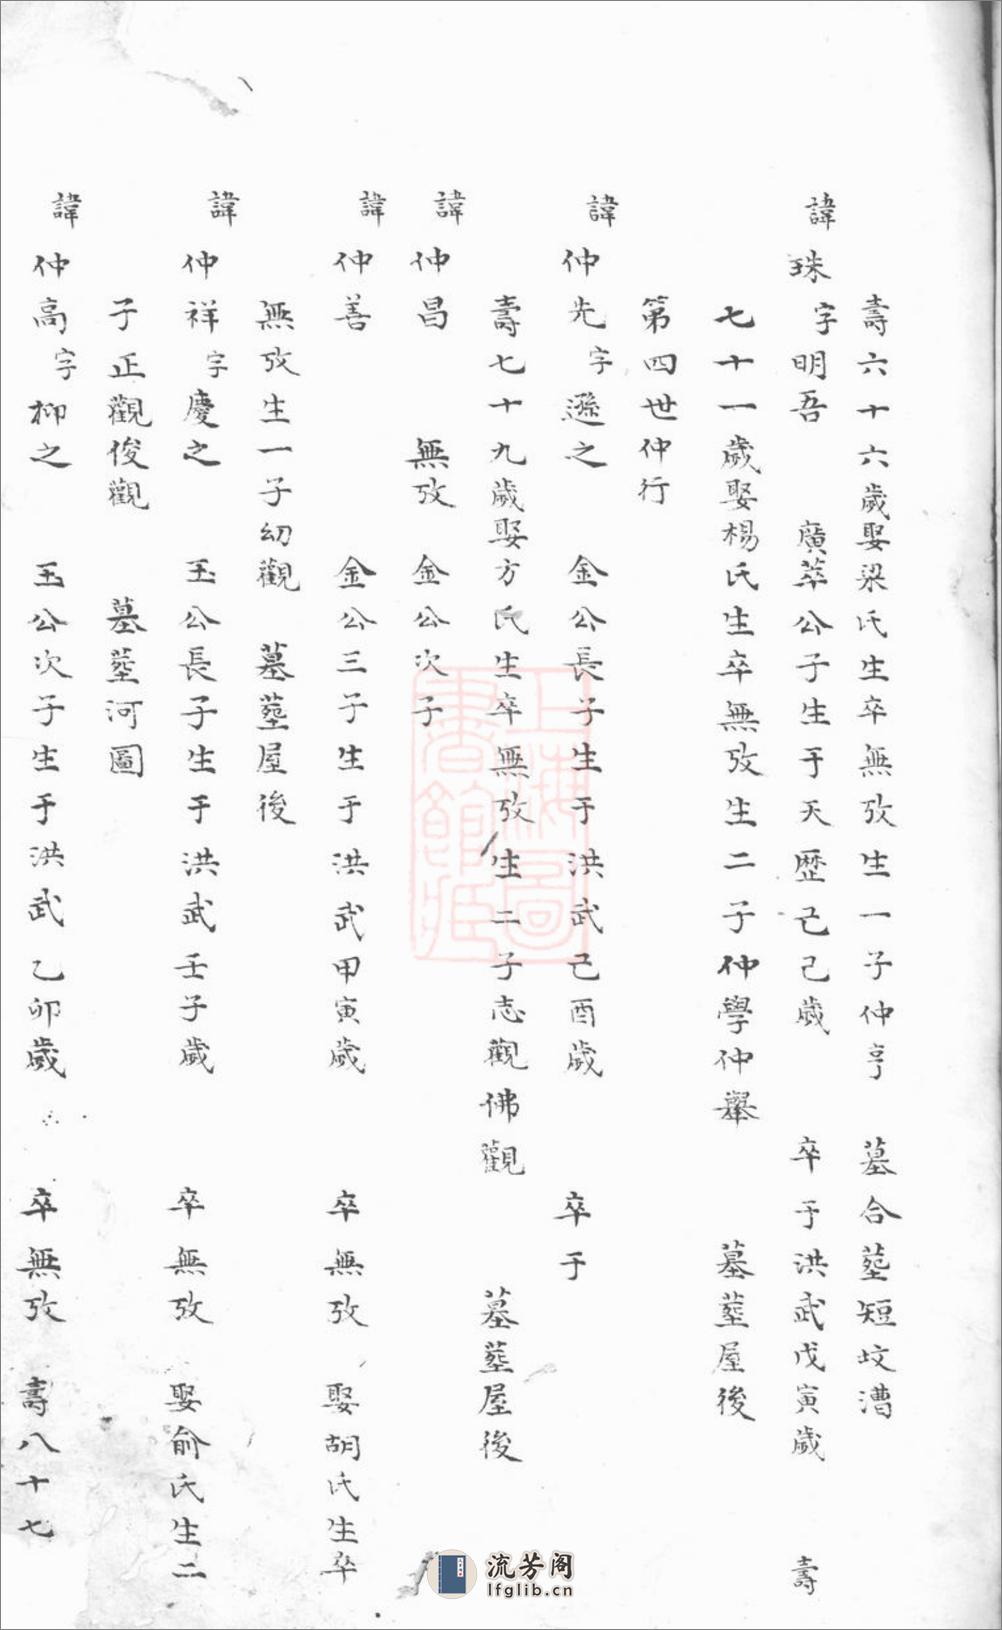 壽六十六歲娶梁氏生卒無攷生一子仲亨 墓合塟短坟漕
諱珠字明吾 廣萃公子生于天歷己巳歲 卒于洪武戊寅歲 壽
七十一歲娶楊氏生卒無攷生二子仲學仲舉 墓塟屋後
第四世仲行
諱仲先字遜之 金公長子生于洪武己酉歲 卒于
壽七十九歲娶方氏生卒無攷生二子志觀佛觀 墓塟屋後
諱仲昌 無攷 金公次子
諱仲善 金公三子生于洪武甲寅歲 卒無攷 娶胡氏生卒
無攷生一子幼觀 墓塟屋後
諱仲祥字慶之 玉公長子生于洪武壬子歲 卒無攷 娶俞氏生二
子正觀俊觀 墓塟河圖
諱仲高字柳之 玉公次子生于洪武乙卯歲 卒無攷 壽八十七
上海圖書館藏
流芳阁
lfglib.cn